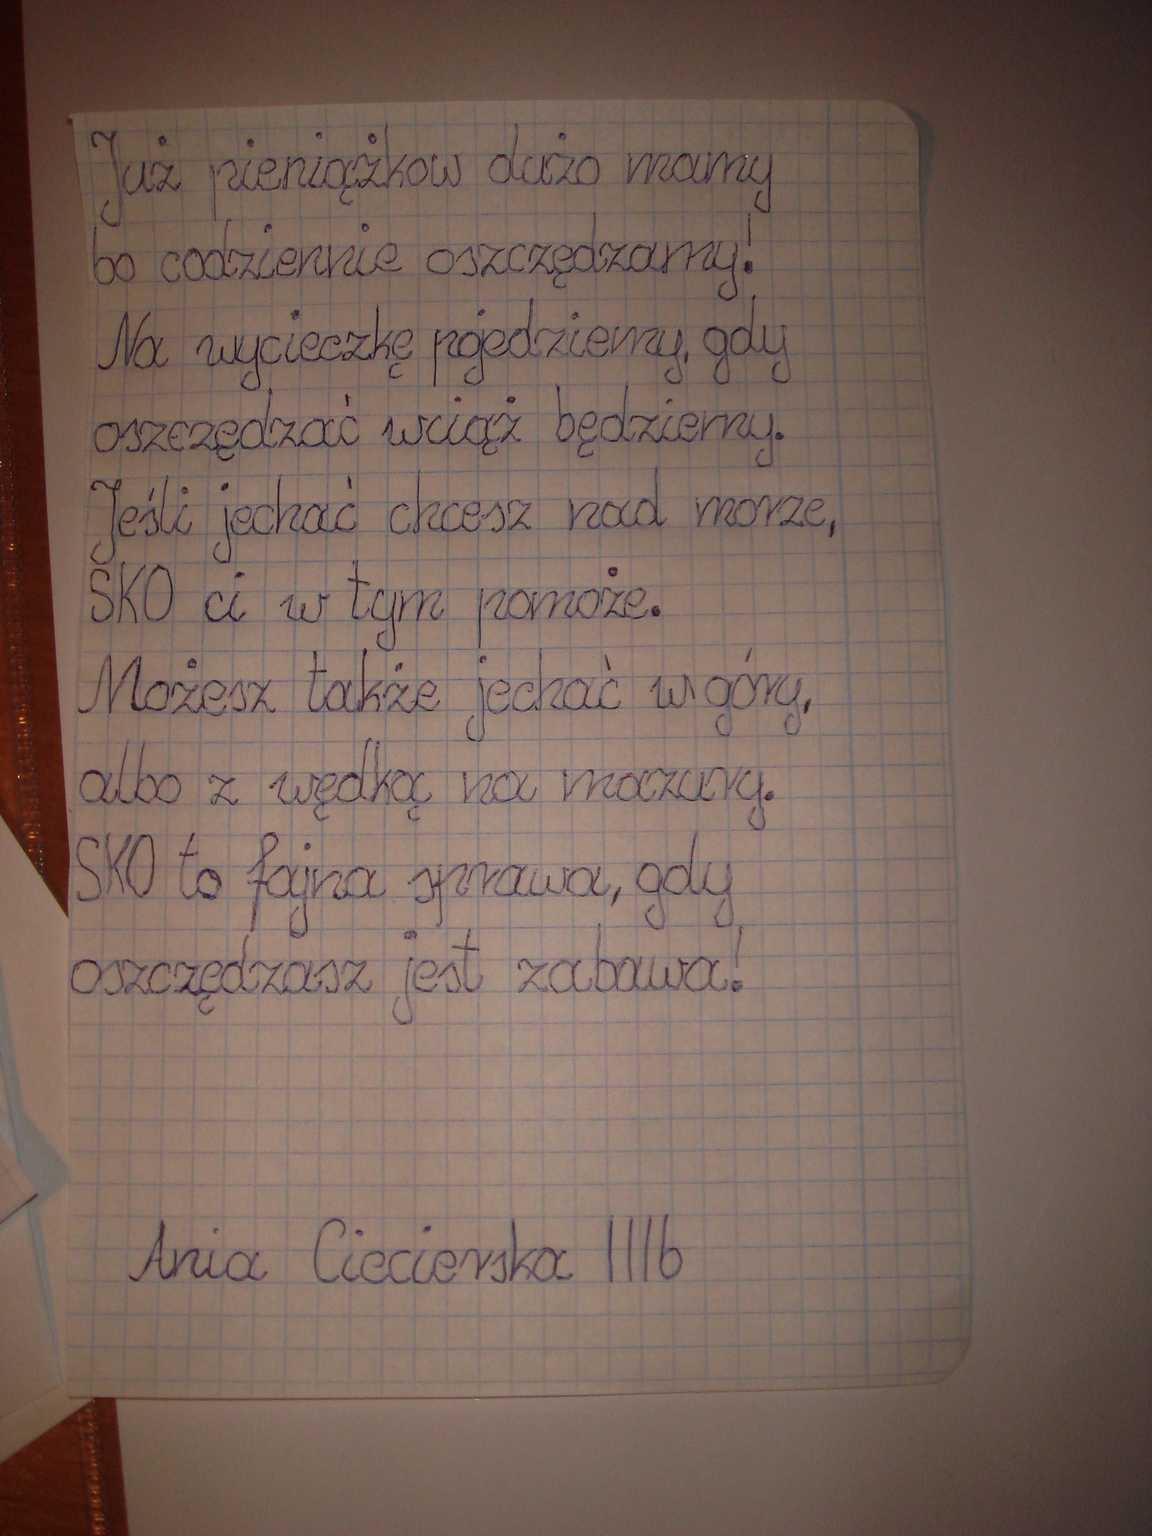 Już pieniążkow dużo mamy
bo codziennie oszczędzamy!
Na wycieczkę pojedziemy, gdy
oszczędzać wciąż będziemy.
Jeśli jechać chcesz nad morze,
SKO ci w tym pomoże.
Możesz także jechać w góry,
albo z wędką na mazury.
SKO to fajna sprawa, gdy
oszczędzasz jest zabawa!
Ania Ciecierska IIIb